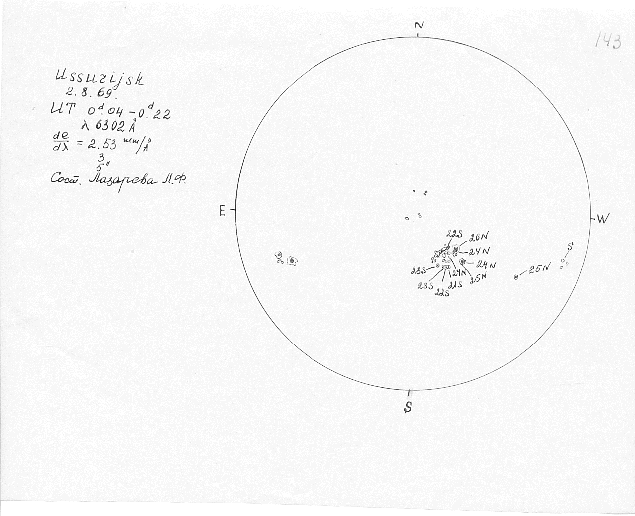 N
143
Ussurijsk
2.8.69.
UT 0ᵈ.04 – 0ᵈ.22
λ 6302 Å
de/dλ = 2.53 mm/Å
3
5
Сост. Лазарева Л.Ф.
E
W
22S
26N
24N
24N
S
25N
23S
24N
25N
23S
22S
22S
S